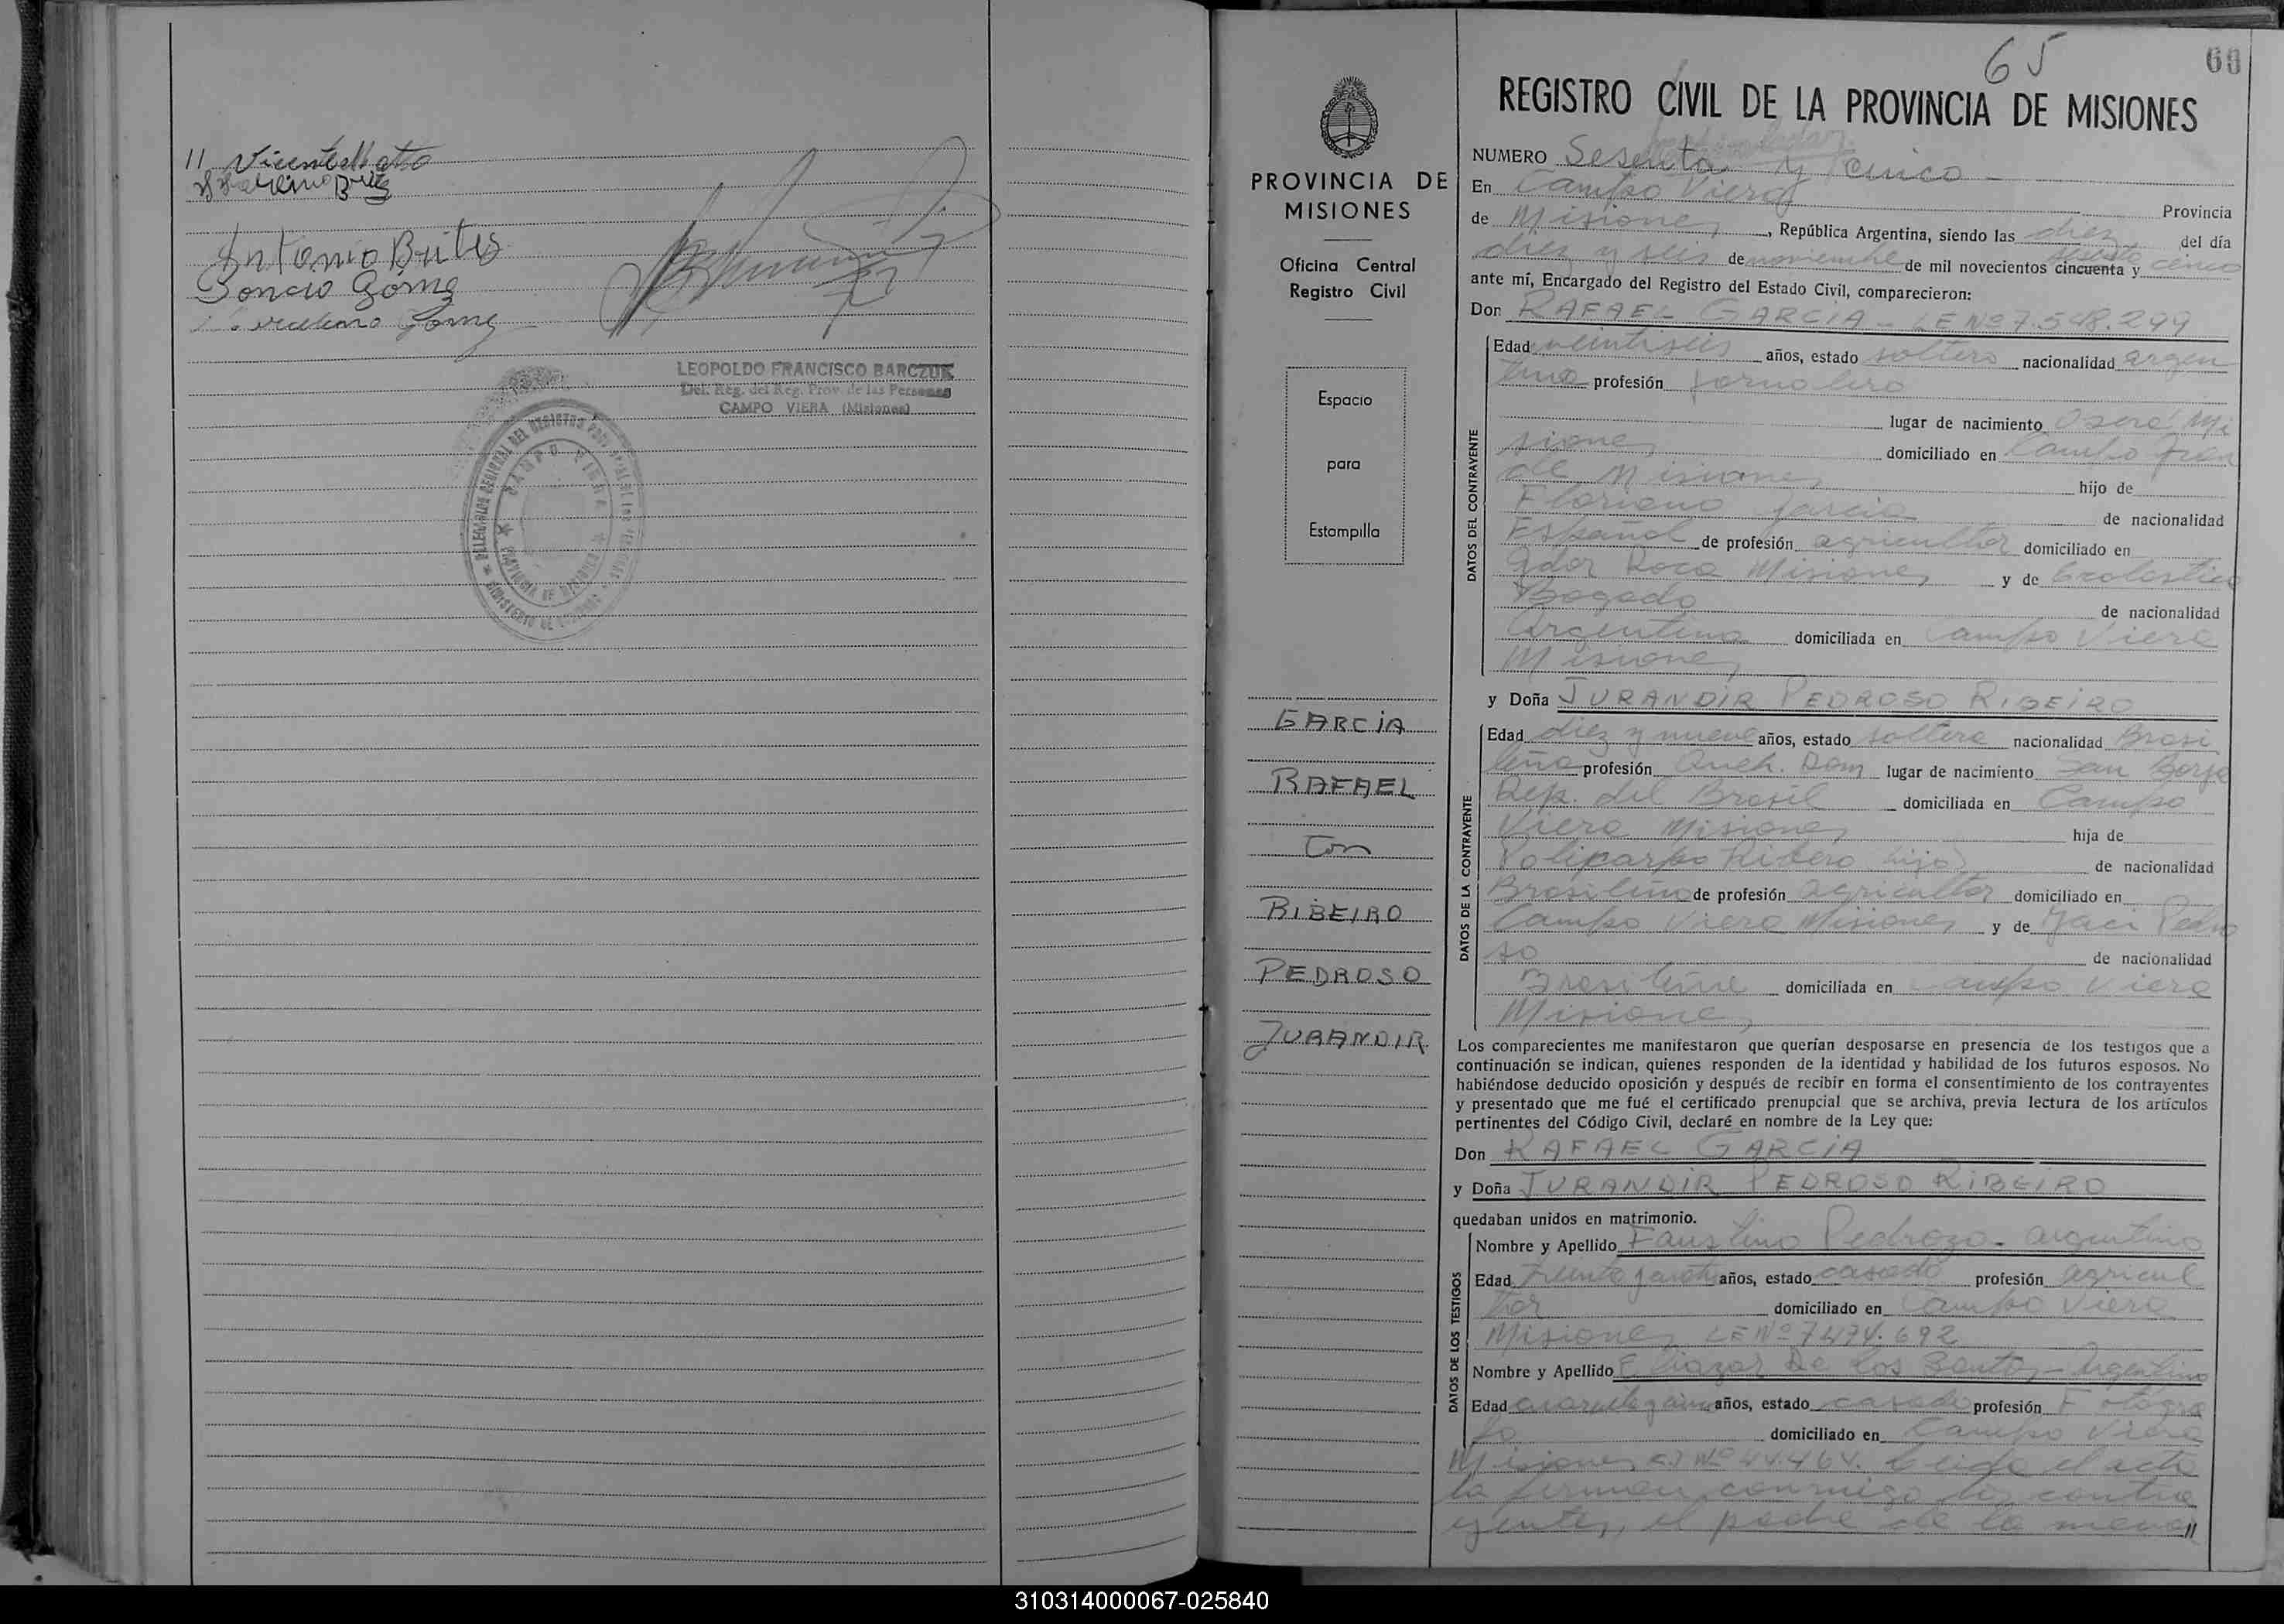 11 Vicente Mato
Antonio Brites
Poncio Gómez
Gomez
LEOPOLDO FRANCISCO BARCZUK
Del. Reg. del Reg. Prov. de las Personas
CAMPO VIERA (Misiones)
65
REGISTRO CIVIL DE LA PROVINCIA DE MISIONES
PROVINCIA DE
MISIONES
Oficina Central
Registro Civil
Espacio
para
Estampilla
GARCIA
RAFAEL
Con
RIBEIRO
PEDROSO
JURANDIR
NUMERO Sesenta y cinco
En Campo Viera Provincia
de Misiones, República Argentina, siendo las diez del día
diez y seis de noviembre de mil novecientos cincuenta y sesenta cinco
ante mí, Encargado del Registro del Estado Civil, comparecieron:
Don RAFAEL GARCIA - LE Nº 7.548.299
DATOS DEL CONTRAYENTE
Edad veintiseis años, estado soltero nacionalidad argen
tina profesión jornalero
lugar de nacimiento Oberá Mi
siones domiciliado en Campo Viera
de Misiones hijo de
Floriano Garcia de nacionalidad
Español de profesión agricultor domiciliado en
Gdor Roca Misiones y de Escolastica
Bogado de nacionalidad
Argentina domiciliada en Campo Viera
Misiones
y Doña JURANDIR PEDROSO RIBEIRO
DATOS DE LA CONTRAYENTE
Edad diez y nueve años, estado soltera nacionalidad Brasi
leña profesión Queh. Dom lugar de nacimiento San Borja
Rep. del Brasil domiciliada en Campo
Viera Misiones hija de
Policarpo Ribero hijo de nacionalidad
Brasileño de profesión agricultor domiciliado en
Campo Viera Misiones y de Jaci Pedro
so de nacionalidad
Brasileña domiciliada en Campo Viera
Misiones
Los comparecientes me manifestaron que querían desposarse en presencia de los testigos que a
continuación se indican, quienes responden de la identidad y habilidad de los futuros esposos. No
habiéndose deducido oposición y después de recibir en forma el consentimiento de los contrayentes
y presentado que me fué el certificado prenupcial que se archiva, previa lectura de los artículos
pertinentes del Código Civil, declaré en nombre de la Ley que:
Don RAFAEL GARCIA
y Doña JURANDIR PEDROSO RIBEIRO
quedaban unidos en matrimonio.
DATOS DE LOS TESTIGOS
Nombre y Apellido Faustino Pedrozo - argentino
Edad treinta y años, estado casado profesión agricul
tor domiciliado en Campo Viera
Misiones LE Nº 7474.692
Nombre y Apellido Eliazar De los Santos - Argentino
Edad años, estado casado profesión Fotogra
fo domiciliado en Campo Viera
Misiones Nº 44.464. Leida el acta
la firman conmigo los contra
yentes, el padre de la menor //
310314000067-025840